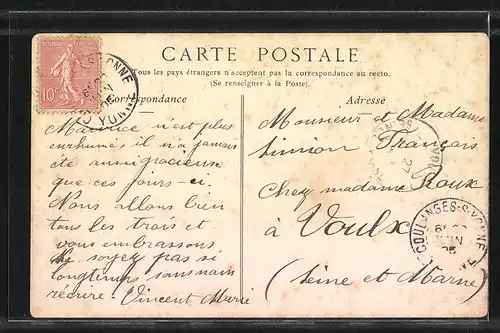 CARTE POSTALE
Tous les pays étrangers n'acceptent pas la correspondance au recto.
(Se renseigner à la Poste).
Correspondance
Maurice n'est plus
enrhumé, il n'a jamais
été aussi gracieux
que ces jours-ci.
Nous allons bien
tous les trois et
vous embrassons.
Ne soyez pas si
longtemps sans nous
récrire. Vincent Marie
Adresse
Monsieur et Madame
Simion Français
Chez madame Roux
à Voulx
(Seine et Marne)
10
COULANGES-S-YONNE
JUIN
05
YONNE